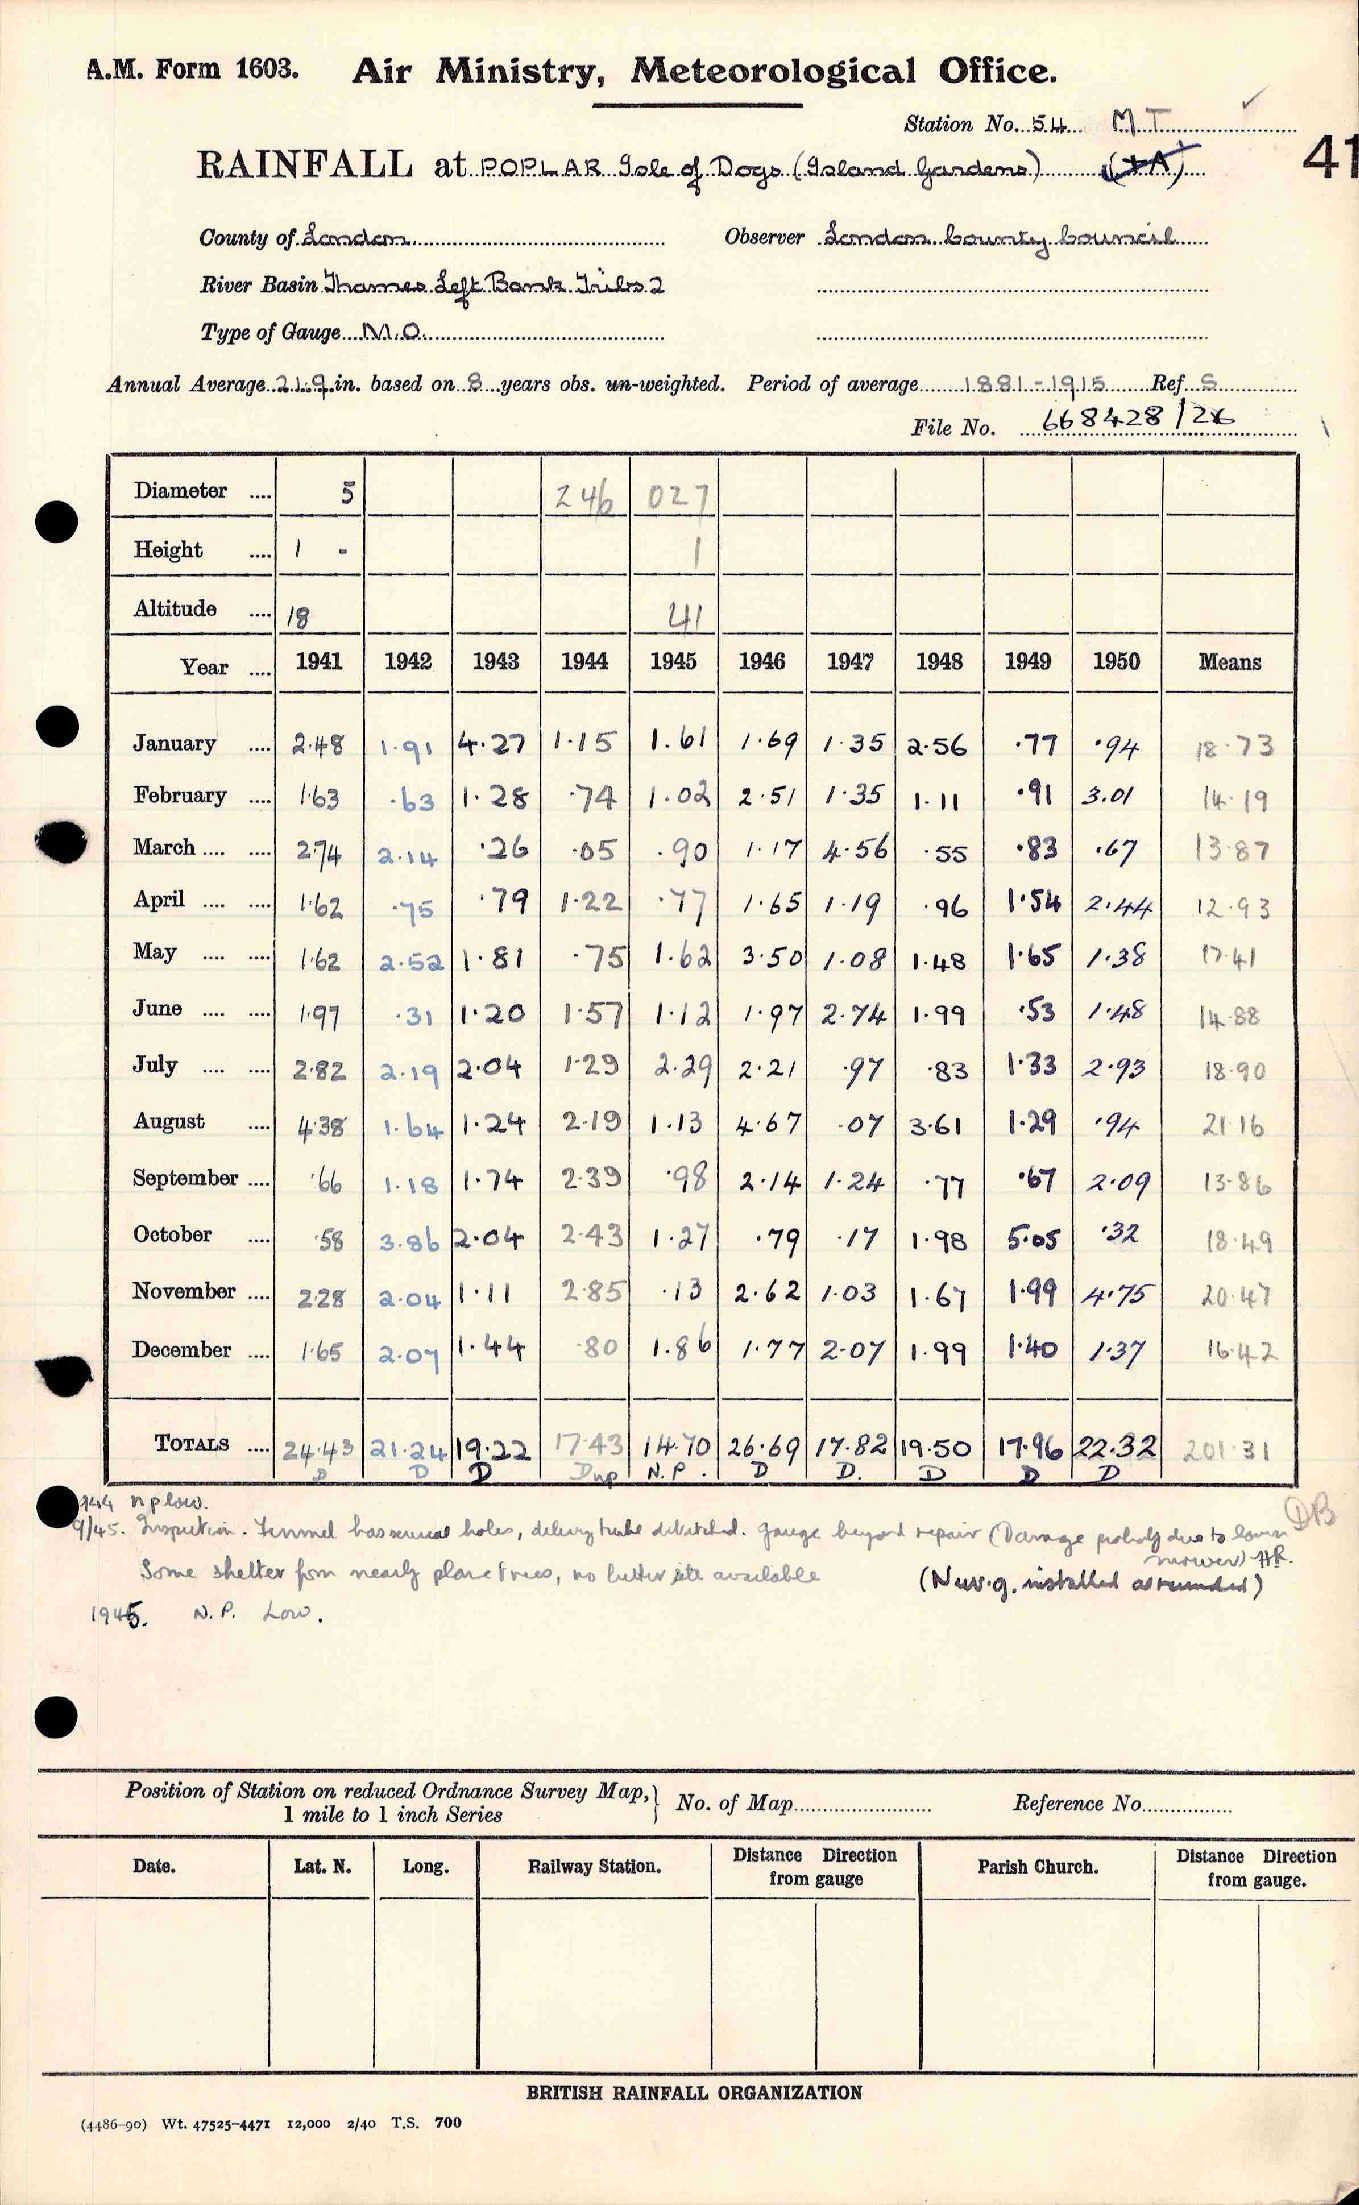 A.M. Form 1603. Air Ministry, Meteorological Office.
Station No. 54 MT
41
RAINFALL at POPLAR Isle of Dogs (Island Gardens)
County of London Observer London County Council
River Basin Thames Left Bank Tribs 2
Type of Gauge M.O.
Annual Average 21.9 in. based on 8 years obs. un-weighted. Period of average 1881-1915 Ref S
File No. 668428/26
Diameter .... 5 246 027
Height .... 1 - 1
Altitude .... 18 41
Year .... 1941 1942 1943 1944 1945 1946 1947 1948 1949 1950 Means
January .... 2.48 1.91 4.27 1.15 1.61 1.69 1.35 2.56 .77 .94 18.73
February .... 1.63 .63 1.28 .74 1.02 2.51 1.35 1.11 .91 3.01 14.19
March .... .... 2.74 2.14 .26 .05 .90 1.17 4.56 .55 .83 .67 13.87
April .... .... 1.62 .75 .79 1.22 .77 1.65 1.19 .96 1.54 2.44 12.93
May .... .... 1.62 2.52 1.81 .75 1.62 3.50 1.08 1.48 1.65 1.38 17.41
June .... .... 1.97 .31 1.20 1.57 1.12 1.97 2.74 1.99 .53 1.48 14.88
July .... .... 2.82 2.19 2.04 1.29 2.29 2.21 .97 .83 1.33 2.93 18.90
August .... 4.38 1.64 1.24 2.19 1.13 4.67 .07 3.61 1.29 .94 21.16
September .... .66 1.18 1.74 2.39 .98 2.14 1.24 .77 .67 2.09 13.86
October .... .58 3.86 2.04 2.43 1.27 .79 .17 1.98 5.05 .32 18.49
November .... 2.28 2.04 1.11 2.85 .13 2.62 1.03 1.67 1.99 4.75 20.47
December .... 1.65 2.07 1.44 .80 1.86 1.77 2.07 1.99 1.40 1.37 16.42
TOTALS .... 24.43 21.24 19.22 17.43 14.70 26.69 17.82 19.50 17.96 22.32 201.31
D D D Dnp N.P. D D. D D D
1944 n p low.
DB
9/45. Inspection. Funnel has several holes, delivery tube detached. Gauge beyond repair (Damage probably due to lawn
mower)
Some shelter from nearby plane trees, no better site available (New g. installed as rounded)
1945. N.P. Low.
Position of Station on reduced Ordnance Survey Map, 1 mile to 1 inch Series } No. of Map Reference No.
Date. Lat. N. Long. Railway Station. Distance Direction from gauge Parish Church. Distance Direction from gauge.
BRITISH RAINFALL ORGANIZATION
(4486-90) Wt. 47525-4471 12,000 2/40 T.S. 700